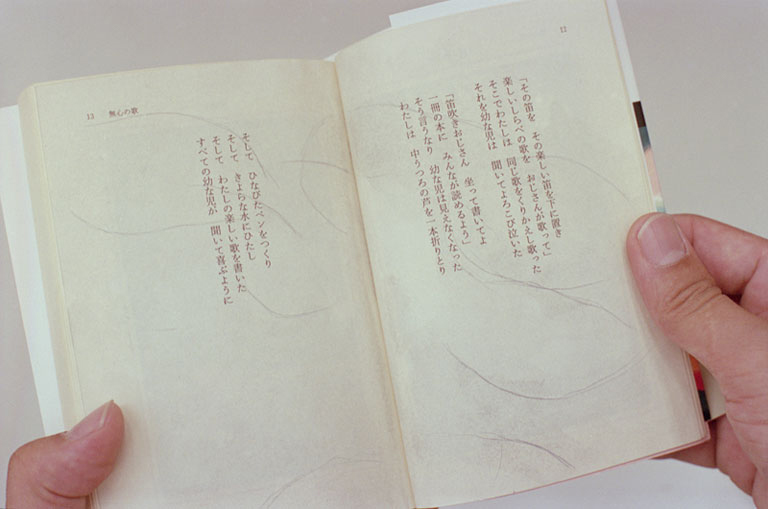 12
「その笛を　その楽しい笛を下に置き
楽しいしらべの歌を　おじさんが歌って」
そこでわたしは　同じ歌をくりかえし歌った
それを幼な児は　聞いてよろこび泣いた
「笛吹きおじさん　坐って書いてよ
一冊の本に　みんなが読めるよう」
そう言うなり　幼な児は見えなくなった
わたしは　中うつろの芦を一本折りとり
13　無心の歌
そして　ひなびたペンをつくり
そして　きよらな水にひたし
そして　わたしの楽しい歌を書いた
すべての幼な児が　聞いて喜ぶように